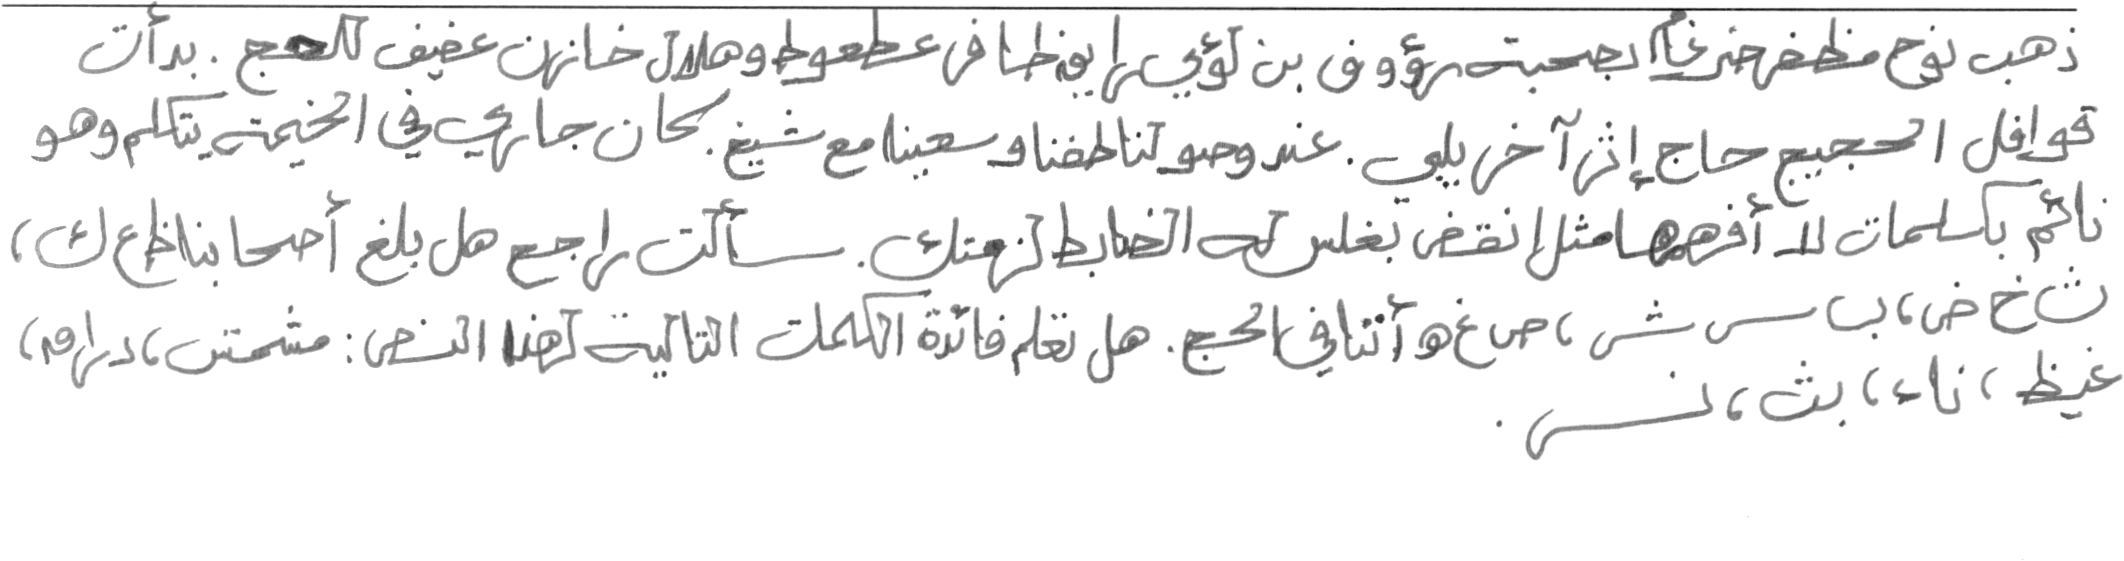 ذهب نوح مظفر ضرغام بصحبة رؤوف بن لؤي رايق ظافر عطعوط وهلال خازن عفيف للحج . بدأت
قوافل الحجيج حاج إثر آخر يلبي . عند وصولنا طفنا وسعينا مع شيخ . كان جاري في الخيمة يتكلم وهو
نائم بكلمات لا أفهمها مثل إنقض تغلس له الضابط لزهتك . سألت راجح هل بلغ أصحابنا ظ ع ك ،
ث خ ض ، ب س ش ، ص غ هـ أثنا في الحج . هل تعلم فائدة الكلمات التالية لهذا النص : مشمش ، دراق ،
غيظ ، ناء ، بث ، نس .